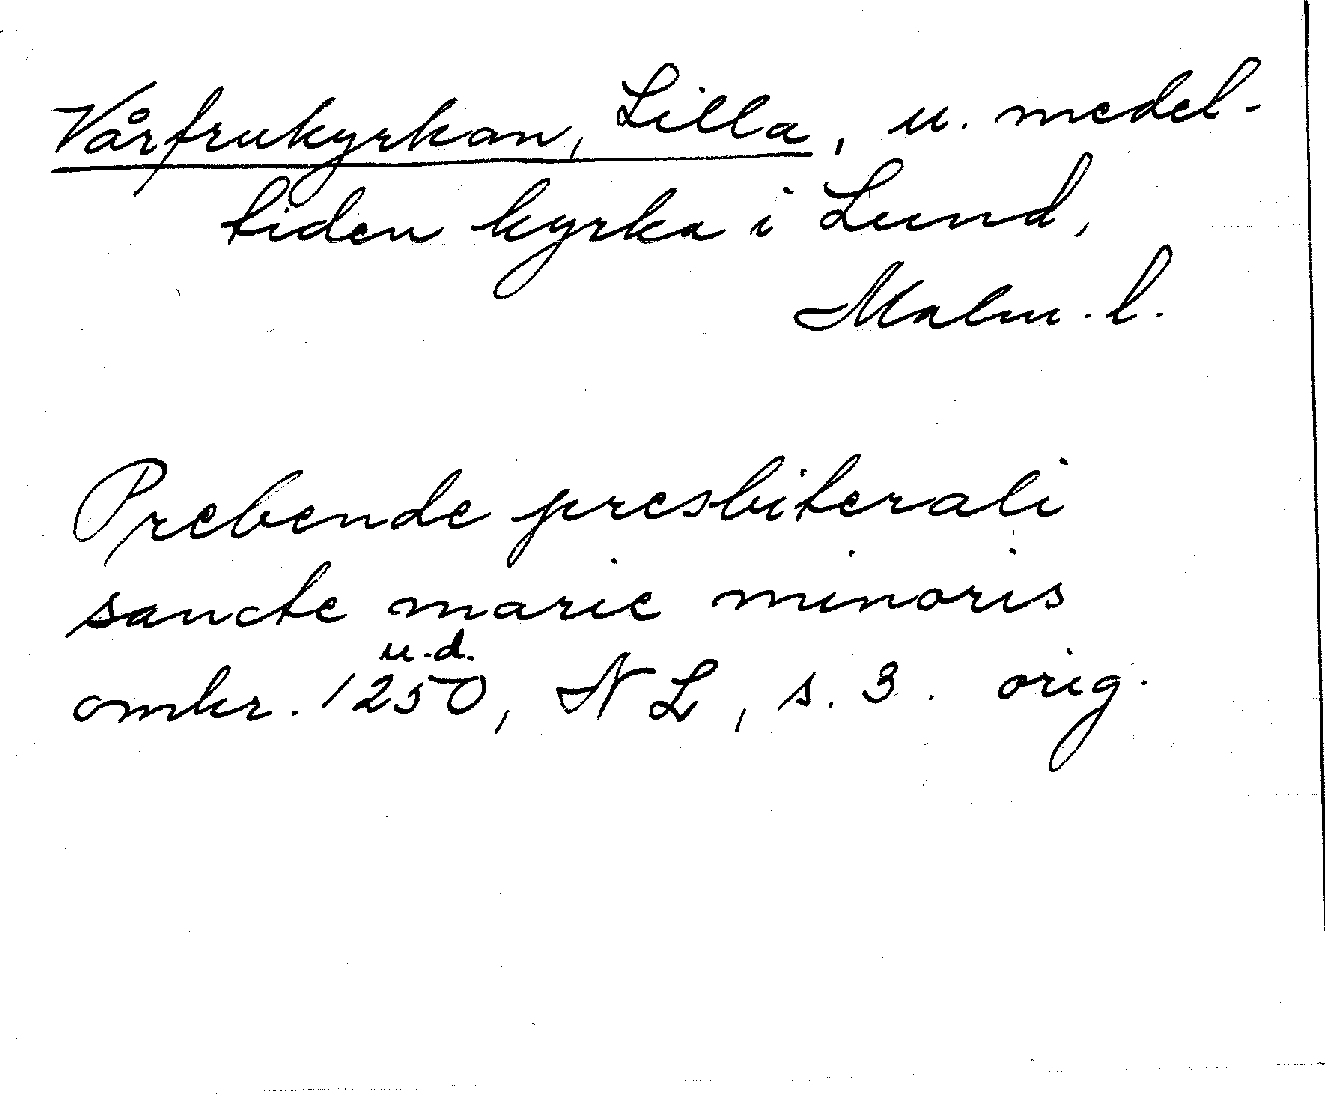 Vårfrukyrkan, Lilla, u. medel-
tiden kyrka i Lund,
Malm. l.
Prebende presbiterali
sancte marie minoris
u.d.
omkr. 1250, NL, s. 3. orig.